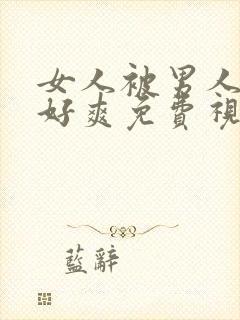 女人被男人
好爽免費視
藍辭